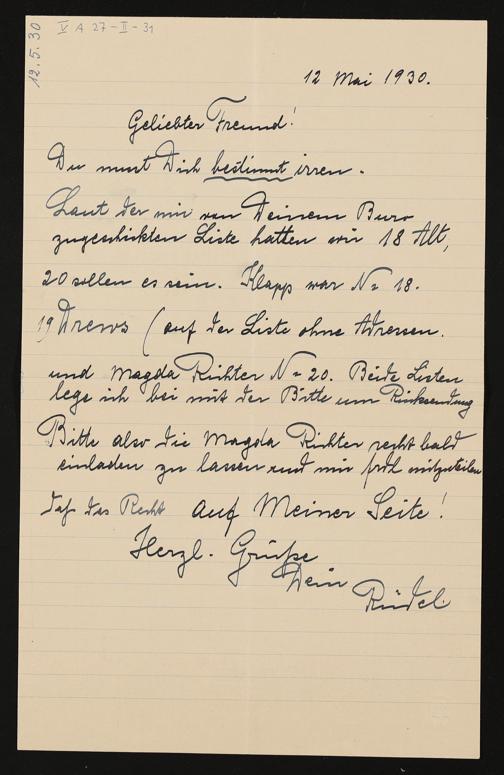 12.5.30
V A 27-II-31
12 Mai 1930.
Geliebter Freund!
Du must Dich bestimmt irren.
Laut der mir von Deinem Buro
zugeschickten Liste hatten wir 18 Alt,
20 sollen es sein. Klapp war No 18.
19 Drews (auf der Liste ohne Adressen.
und Magda Richter No 20. Beide Listen
lege ich bei mit der Bitte um Rücksendung
Bitte also die Magda Richter recht bald
einladen zu lassen und mir frdl mitzuteilen
daß das Recht auf Meiner Seite!
Herzl. Grüße
Dein
Rüdel.